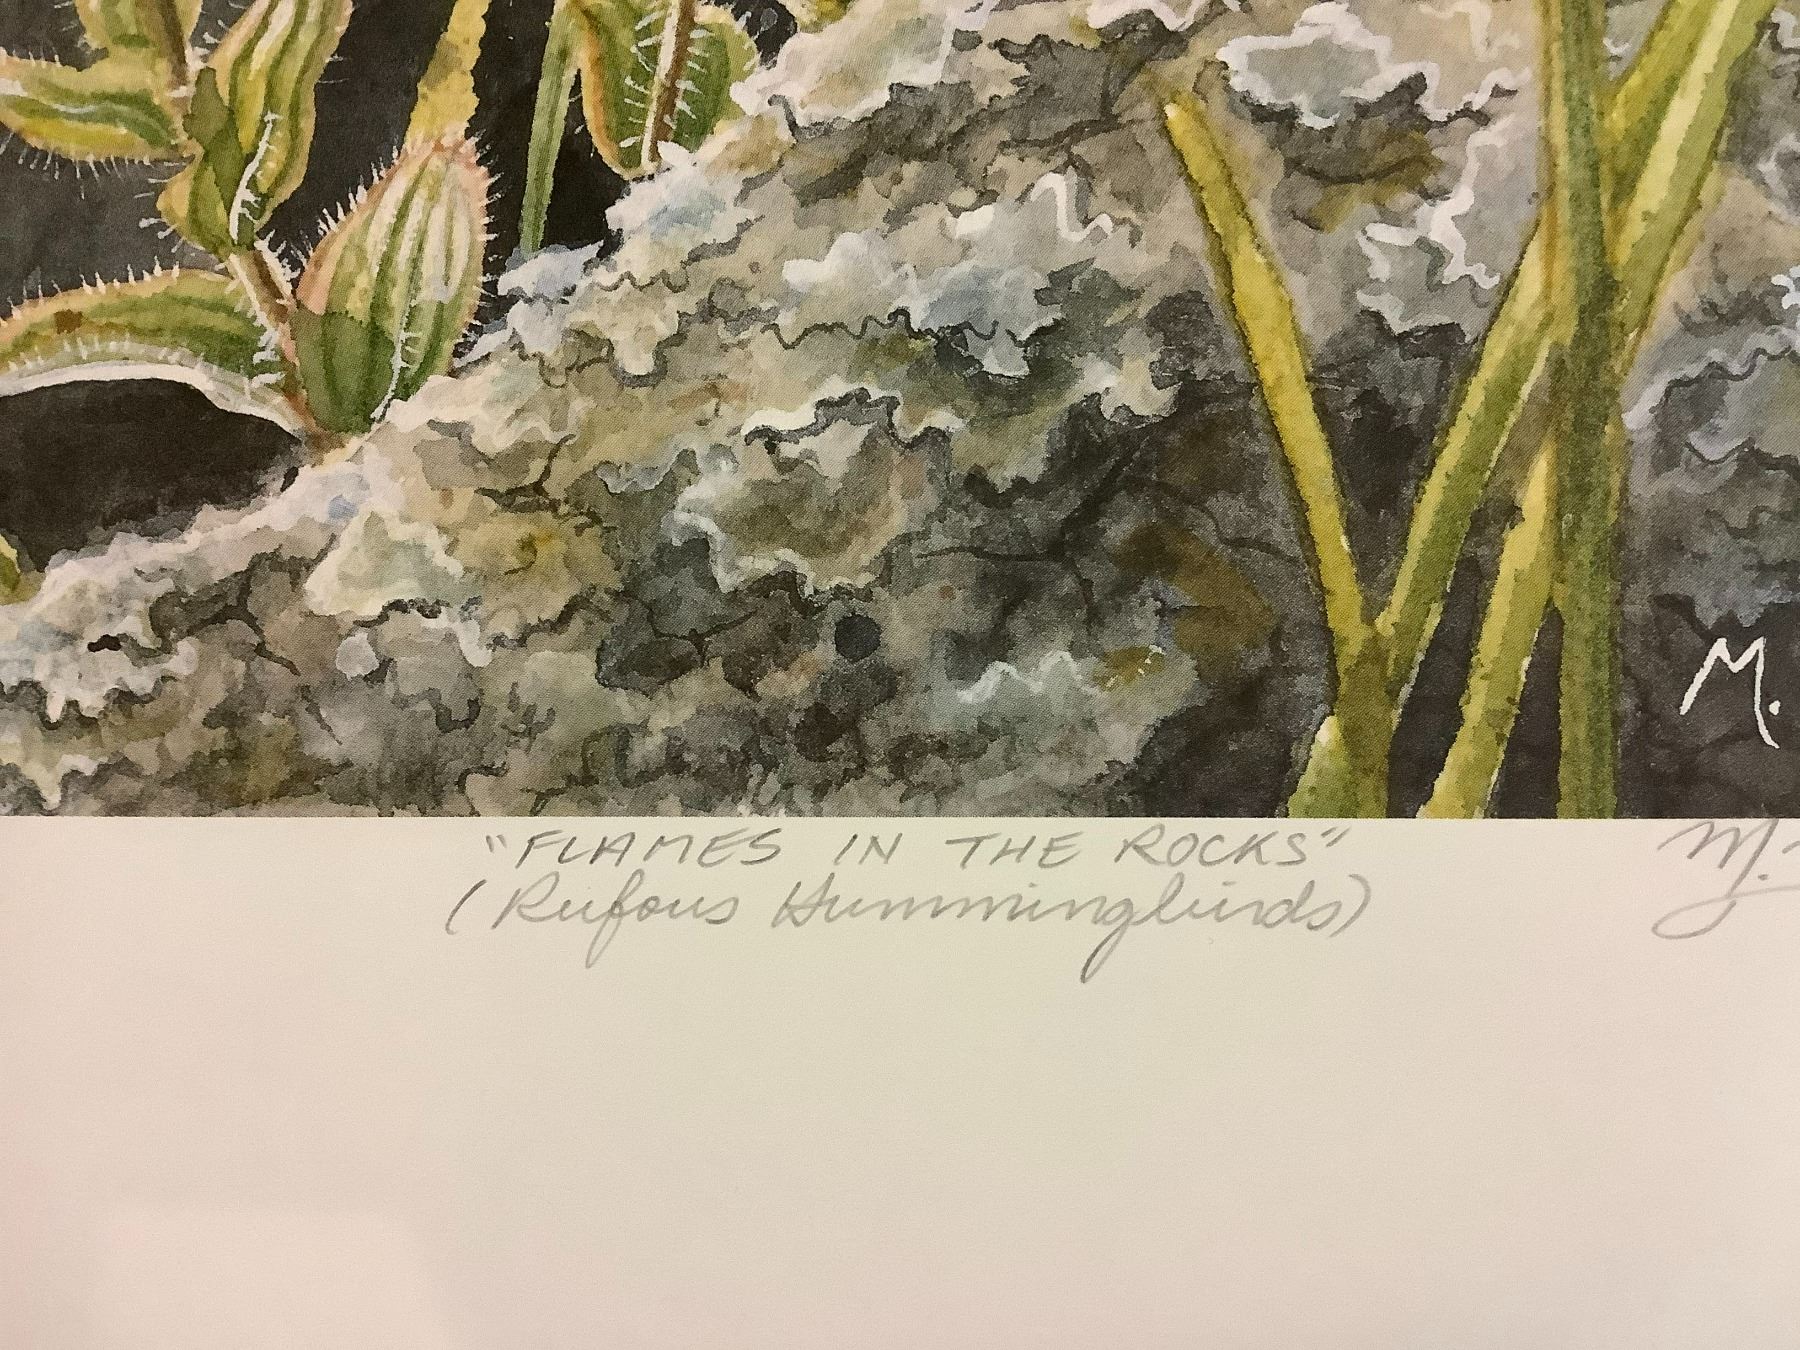 M.
"FLAMES IN THE ROCKS" M.
(Rufous Hummingbirds)